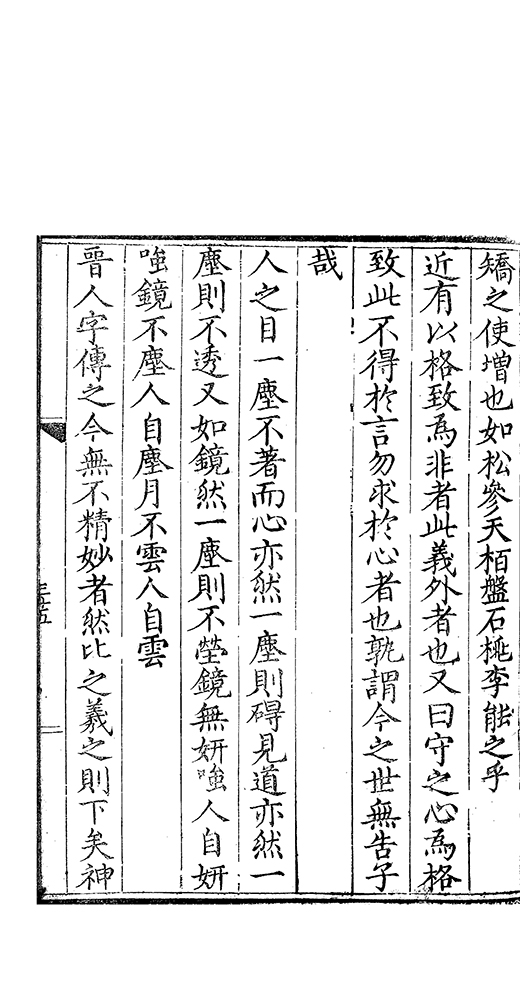 矯之使增也如松參天栢盤石桃李能之乎
近有以格致為非者此義外者也又曰守之心為格
致此不得於言勿求於心者也孰謂今之世無告子
哉
人之目一塵不著而心亦然一塵則碍見道亦然一
塵則不透又如鏡然一塵則不瑩鏡無妍嗤人自妍
嗤鏡不塵人自塵月不雲人自雲
晉人字傳之今無不精妙者然比之羲之則下矣神
三五